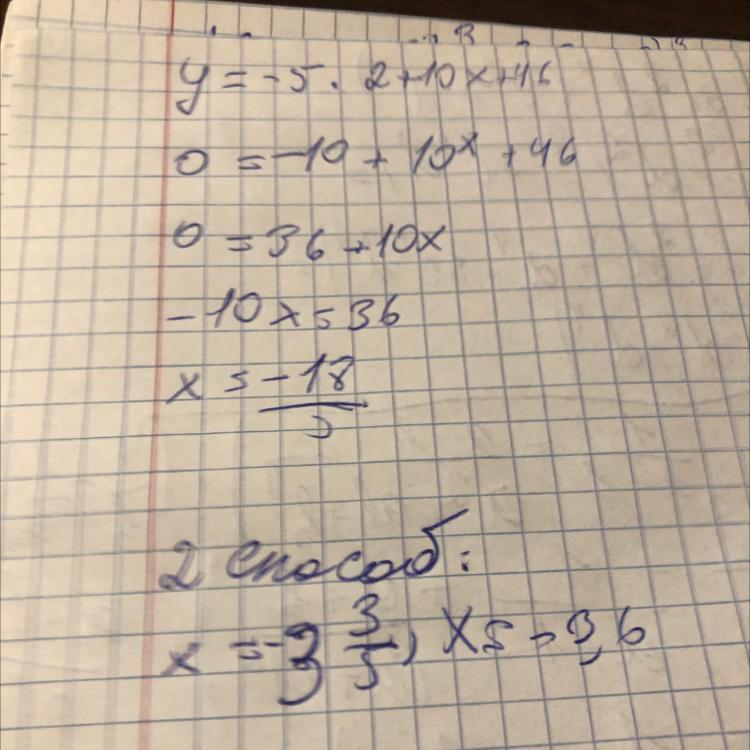 y = -5 · 2 + 10x + 46
0 = -10 + 10x + 46
0 = 36 + 10x
-10x = 36
x = -18/5
2 способ:
x = -3 3/5, x = -3,6